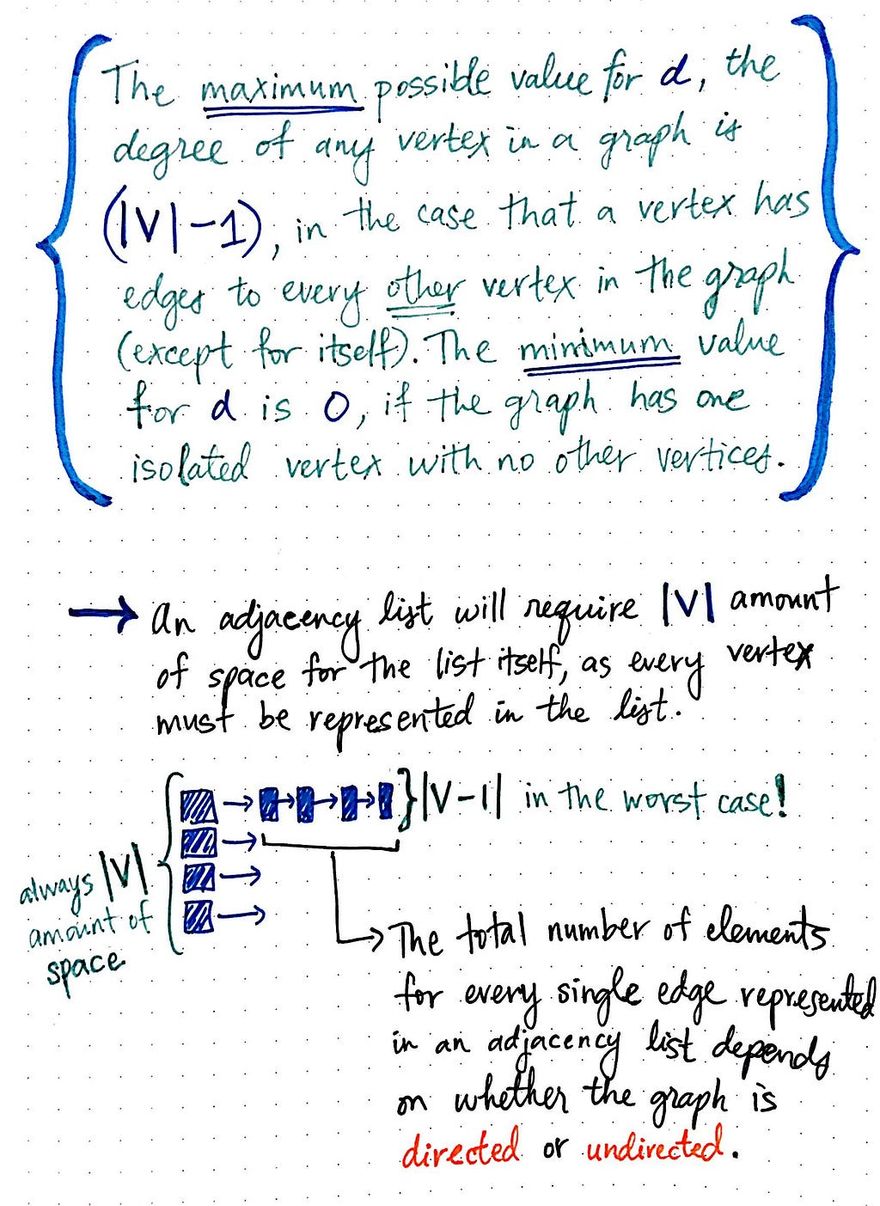 The maximum possible value for d, the
degree of any vertex in a graph is
(|V|-1), in the case that a vertex has
edges to every other vertex in the graph
(except for itself). The minimum value
for d is 0, if the graph has one
isolated vertex with no other vertices.
→ An adjacency list will require |V| amount
of space for the list itself, as every vertex
must be represented in the list.
|V-1| in the worst case!
always |V|
amount of
space
The total number of elements
for every single edge represented
in an adjacency list depends
on whether the graph is
directed or undirected.